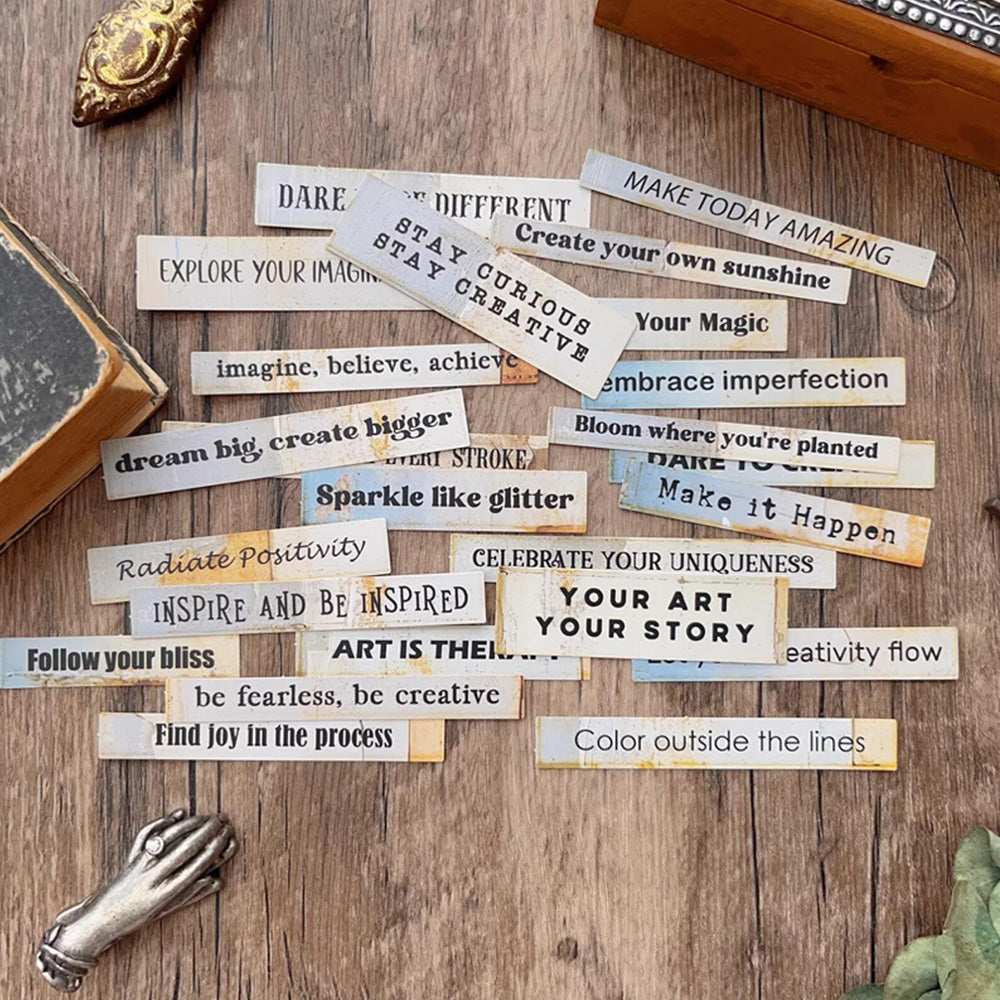 DARE DIFFERENT
MAKE TODAY AMAZING
STAY CURIOUS
STAY CREATIVE
Create your own sunshine
EXPLORE YOUR IMAGIN
Your Magic
imagine, believe, achieve
embrace imperfection
dream big, create bigger
Bloom where you're planted
EVERY STROKE
DARE TO CREA
Sparkle like glitter
Make it Happen
Radiate Positivity
CELEBRATE YOUR UNIQUENESS
INSPIRE AND BE INSPIRED
YOUR ART
YOUR STORY
Follow your bliss
ART IS THERAPY
eativity flow
be fearless, be creative
Find joy in the process
Color outside the lines